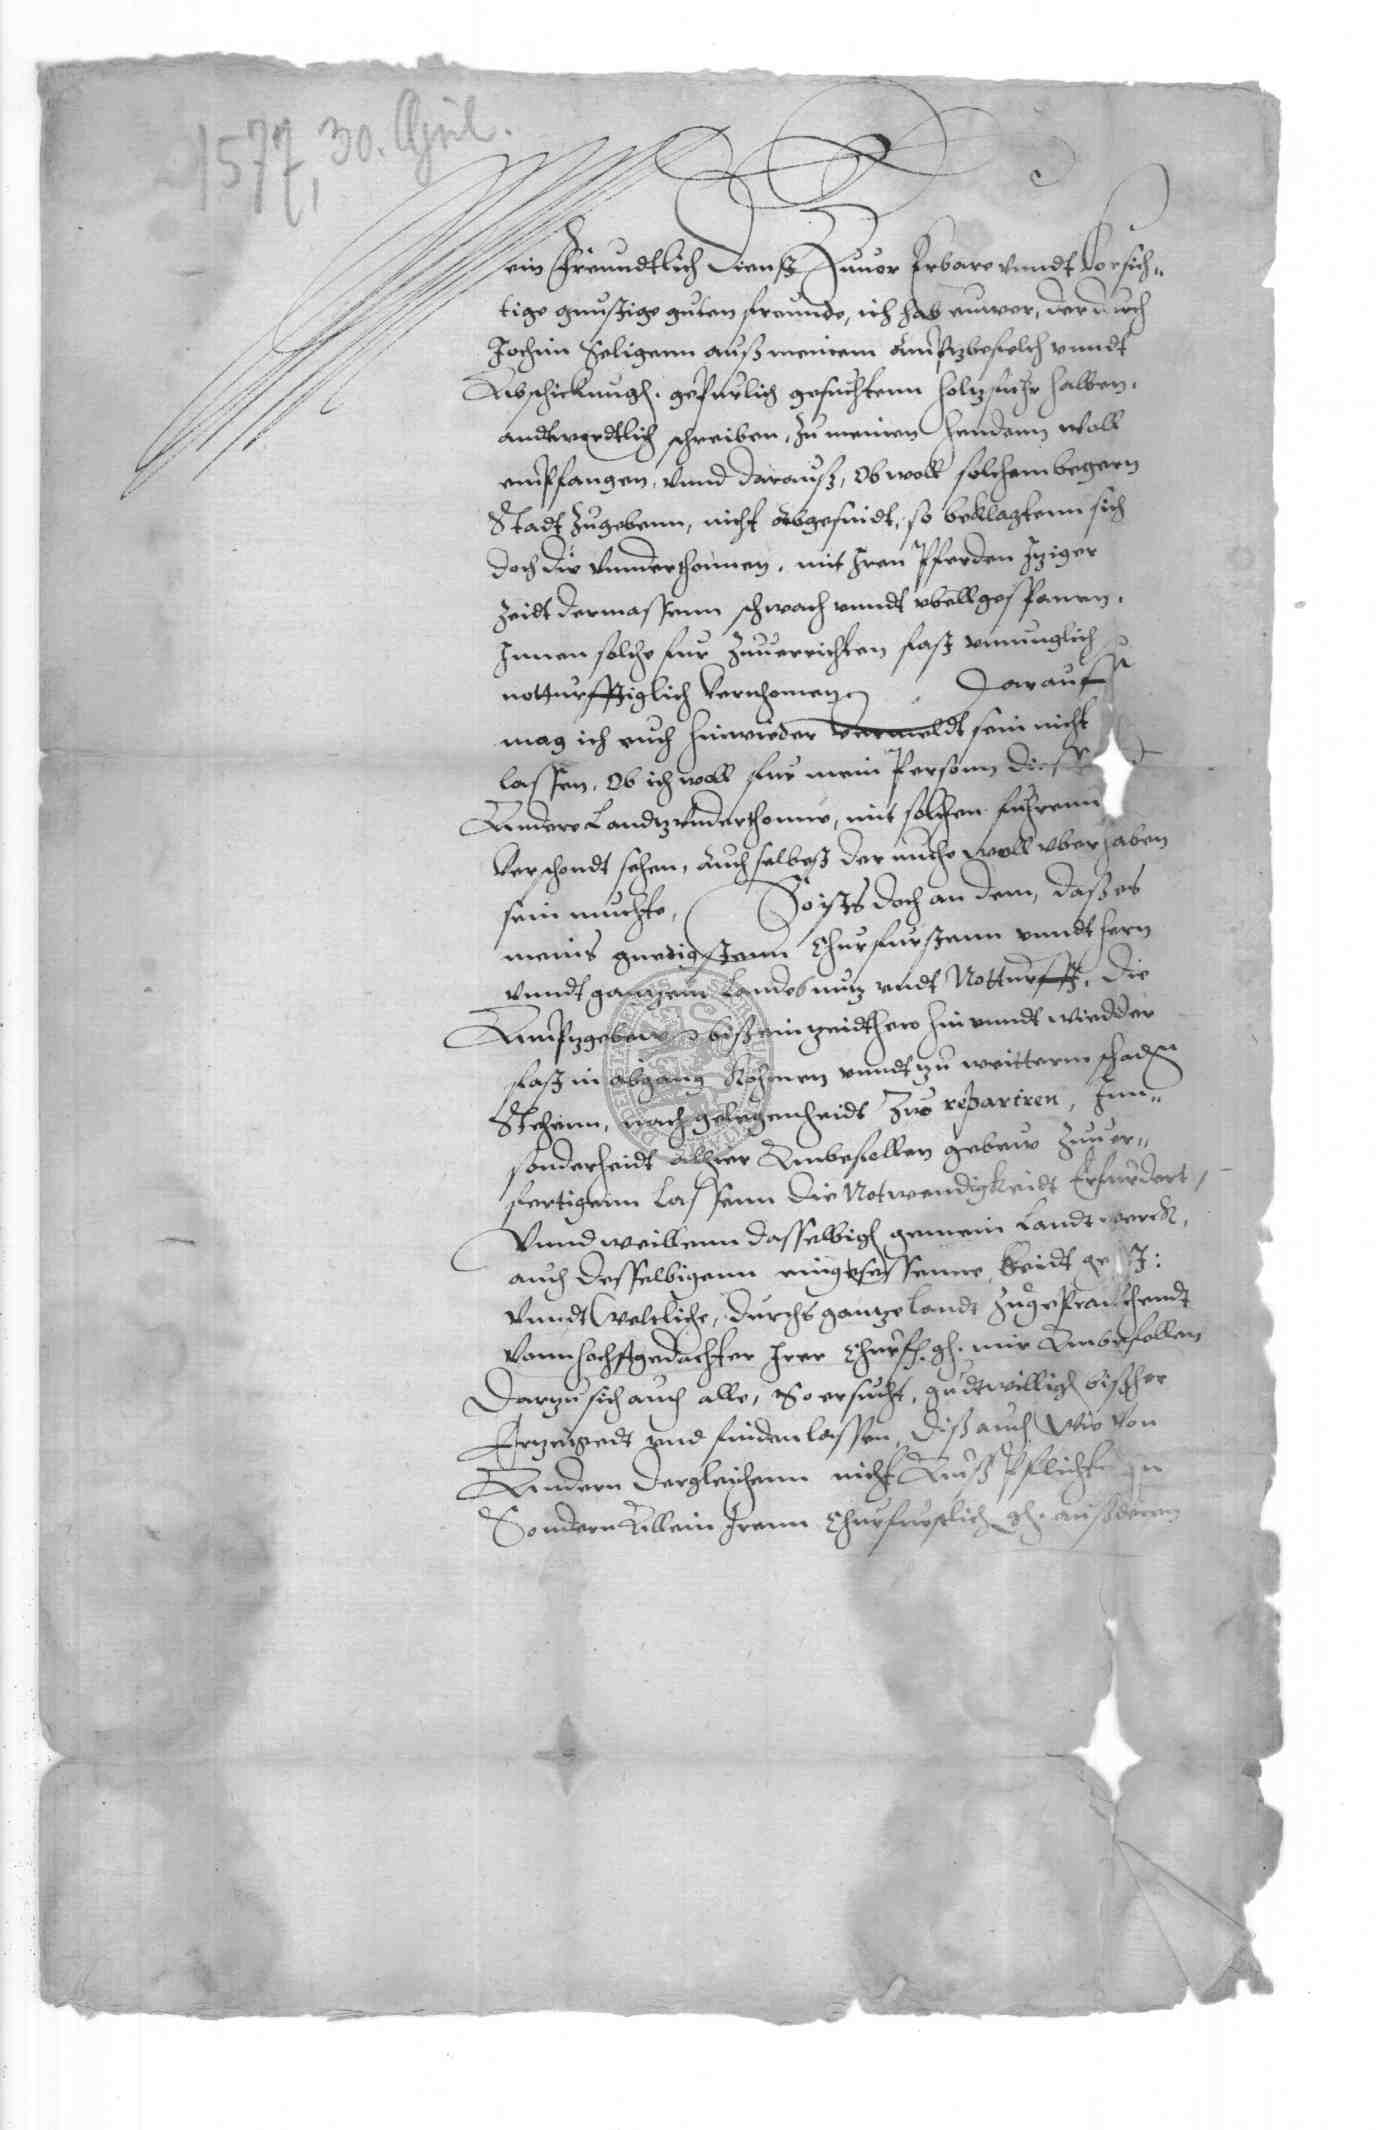 1577, 30. April.
Mein freundtlich dienst Zuuor Erbare vnndt Vorsich-
tige gunstige guten freunde, ich hab euwer, der durch
Jochim Seligenn auß meinem Amptzbefelch vnndt
Abschickung gepurlich gesuchtenn holtzfuhr halben,
andtwordtlich schreiben, Zu meinen Hendenn woll
empfangen, Vnnd darauß, Ob woll solchem begern
Stadt Zugebenn, nicht Abgesindt, so beklagtenn sich
doch die Vnnderthonnen, mit Iren Pferden Itziger
Zeidt dermassenn schwach vnndt vbell gespannen,
Innen solche fur Zuuerrichten fast vnmuglich
notturfftiglich Vernhomen Darauff
mag ich euch hinwieder vermeldt sein nicht
lassen, Ob ich woll fur mein Personn
Andere Landtzvnderthone, mit solchen fuhrenn
Verschondt sehen, Auch selbest der muehe woll vberhaben
sein muchte, So ists doch an dem, daß es
meins gnedigstenn Churfurstenn vnndt hern
vnndt gantzem Landes nutz vndt Notturfft, die
Amptzgebew bißeintzeidthero hin vnndt wiedder
fast in abgang Kohmen vnndt zu weitterm schaden
Stehenn, nach gelegenheidt Zu repariren, Inn-
sonderheidt alhier Anbefollen gebew Zuuer-
fertigenn Lassenn die Notwendigkeidt Erfurdert,
Vnnd weillenn dasselbige gemein Landtwerck,
auch desselbigenn eingesessenne, beidt
vnndt Weltliche, durchs gantze landt
Vonn hochstgedachter Irer Churf. g. mir Anbefollen
Dartzu sich auch alle, So ersucht, gudtwillig bißher
Ertzeigedt vnd finden lassen, diß auch wie von
Andern dergleichenn nicht Auß Pflichte
Sondern Allein Irenn Churfurstlich g.